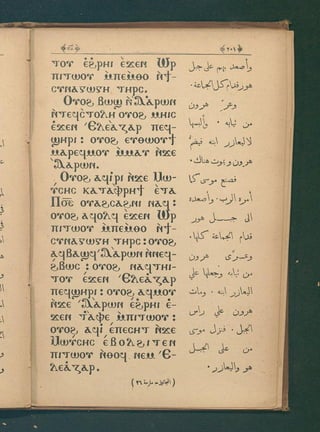 ٢٠١
ⲧⲟⲩ ⲉ̀ϩⲣⲏⲓ ⲉϫⲉⲛ Ⲱⲣ
ⲡⲓⲧⲱⲟⲩ ⲙ̀ⲡⲉⲙⲑⲟ ⲛ̀ϯ-
ⲥⲩⲛⲁⲅⲱⲅⲏ ⲧⲏⲣⲥ.
Ⲟⲩⲟϩ ⲃⲱϣ ⲛ̀Ⲁⲁⲣⲱⲛ
ⲛ̀ⲧⲉϥⲥ̀ⲧⲟⲗⲏ ⲟⲩⲟϩ ⲙⲏⲓⲥ
ⲉϫⲉⲛ Ⲉⲗⲉⲁⲍⲁⲣ ⲡⲉϥ-
ϣⲏⲣⲓ : ⲟⲩⲟϩ ⲉⲩⲟⲩⲱⲧ
ⲙⲁⲣⲉϥⲙⲟⲩ ⲙ̀ⲙⲁⲩ ⲛ̀ϫⲉ
Ⲁⲁⲣⲱⲛ.
Ⲟⲩⲟϩ ⲁϥⲓ̀ⲣⲓ ⲛ̀ϫⲉ Ⲙⲱ-
ⲩ̀ⲥⲏⲥ ⲕⲁⲧⲁⲫⲣⲏϯ ⲉ̀ⲧⲁ
Ⲡⲟ̅ⲥ̅ ⲟⲩⲁϩⲥⲁϩⲛⲓ ⲛⲁϥ :
ⲟⲩⲟϩ ⲁϥⲟⲗϥ ⲉϫⲉⲛ Ⲱⲣ
ⲡⲓⲧⲱⲟⲩ ⲙ̀ⲡⲉⲙⲑⲟ ⲛ̀ϯ-
ⲥⲩⲛⲁⲅⲱⲅⲏ ⲧⲏⲣⲥ : ⲟⲩⲟϩ
ⲁϥⲃⲁϣϥ Ⲁⲁⲣⲱⲛ ⲛ̀ⲛⲉϥ-
ϩ̀ⲃⲱⲥ : ⲟⲩⲟϩ ⲛⲁϥⲧⲏⲓ-
ⲧⲟⲩ ⲉϫⲉⲛ Ⲉⲗⲉⲁⲍⲁⲣ
ⲡⲉϥϣⲏⲣⲓ : ⲟⲩⲟϩ ⲁϥⲙⲟⲩ
ⲛ̀ϫⲉ Ⲁⲁⲣⲱⲛ ⲉ̀ϩⲣⲏⲓ ⲉ̀-
ϫⲉⲛ ⲧ̀ⲁⲫⲉ ⲙ̀ⲡⲓⲧⲱⲟⲩ :
ⲟⲩⲟϩ ⲁϥⲓ̀ ⲉ̀ⲡⲉⲥⲏⲧ ⲛ̀ϫⲉ
Ⲙⲱⲩ̀ⲥⲏⲥ ⲉ̀ⲃⲟⲗϩⲓⲧⲉⲛ
ⲡⲓⲧⲱⲟⲩ ⲛ̀ⲑⲟϥ ⲛⲉⲙ Ⲉ-
ⲗⲉⲁ̀ⲍⲁⲣ.
وأصعد بهم على جبل
هور قدام كل الجماعة ·
وعرّ هرون
من ثيابه · وألبسها
لالعازر ابنه فيضمّ
هرون ويموت هناك ·
فصنع موسى كما
أمره الرب · وأصعده
الى جبل هور
قدام الجماعة كلها ·
وعرّى هرون
من ثيابه وجعلها على
اليعازر ابنه · ومات
هرون على رأس
الجبل · فنزل موسى
من على الجبل
هو واليعازر ·